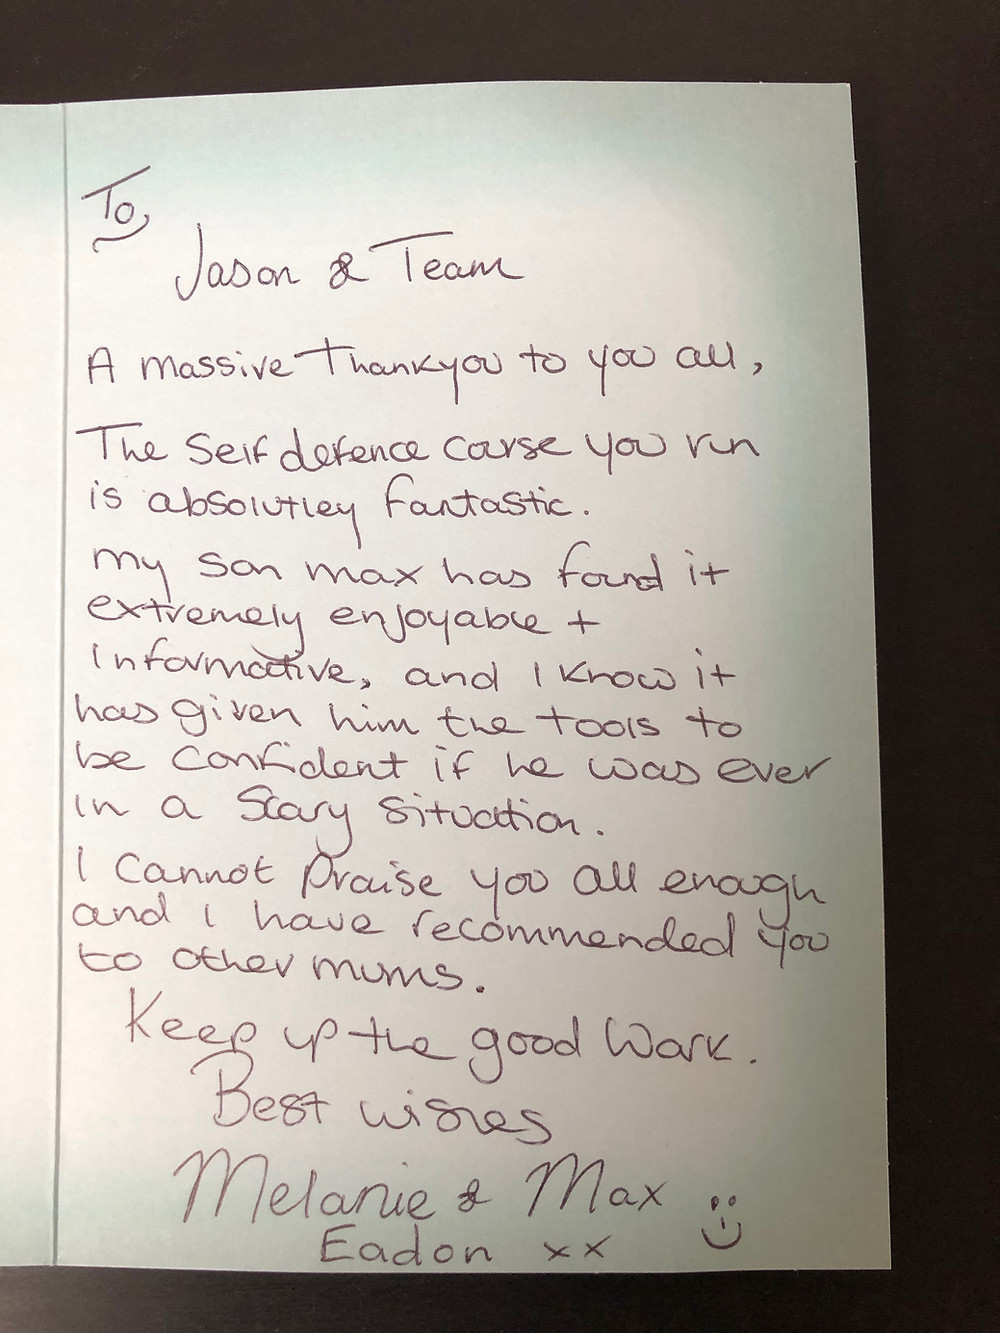 To,
Jason & Team
A massive Thankyou to you all,
The Self defence course you run
is absolutley fantastic.
my son max has found it
extremely enjoyable +
informative, and I know it
has given him the tools to
be confident if he was ever
in a scary situation.
I cannot praise you all enough
and I have recommended you
to other mums.
Keep up the good work.
Best wishes
Melanie & Max
Eadon xx